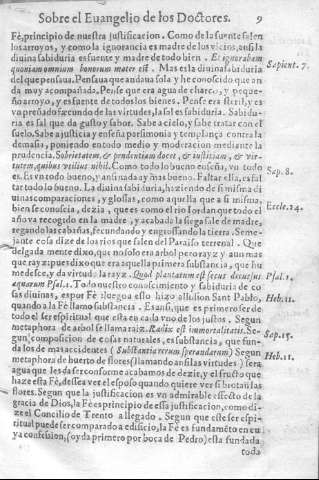 Sobre el Euangelio de los Doctores. 9
Fè, principio de nuestra justificacion. Como de la fuente salen
los arroyos, y como la ignorancia es madre de los vicios, ansi la
diuina sabiduria es fuente y madre de todo bien. Et ignorabam
quoniam omnium bonorum mater est. Mas es la diuina sabiduria
Sapient. 7.
del que pensaua. Pensaua que andaua sola y he conocido que an
da muy acompañada. Pense que era agua de charco, y peque-
ño arroyo, y es fuente de todos los bienes. Pense era steril, y es
vn preñado fecundo de las virtudes, la sal es sabiduria. Sabidu-
ria es sal que da gusto y sabor. Sabe a cielo, y sabe tratar con el
suelo. Sabe a justicia y enseña parsimonia y templança contra la
demasia, poniendo en todo medio y moderacion mediante la
prudencia. Sobrietatem, & prudentiam docet, & iustitiam, & vir-
tutem, quibus vtilius nihil. Como todo lo bueno enseña, vn todo
Sap. 8.
es. Es vn todo bueno, y ansi nada y mas bueno. Faltar ella, es fal
tar todo lo bueno. La diuina sabiduria, haziendo de si misma di
uinas comparaciones, y glossas, como aquella que a si misma,
bien se conoscia, dezia, que es como el rio Iordan que todo el
Eccle. 24.
año va recogido en la madre, y acabada la siega sale de madre,
regando las cabañas, fecundando y engrossando la tierra. Seme-
jante cosa dize de los rios que salen del Paraiso terrenal. Que
delgada mente dixo, que no solo era arbol pero rayz y aun mas
que rayz: pues dixo que era aquella primera substancia, que hu
medesce, y da virtud a la rayz. Quod plantatum est secus decursus
Psal. 1.
aquarum Psal. 1. Todo nuestro conoscimiento y sabiduria de co
sas diuinas, es por Fè y luego esso hizo allusion Sant Pablo,
Heb. 11.
quando a la Fè llamo substancia. Es ansi, que es primero ser de
todo el ser espiritual que esta en cada vno de los justos. Segun
metaphora de arbol se llama raiz. Radix est immortalitatis. Se-
Sap. 15.
gun composicion de cosas naturales, es substancia, que fun-
da los de mas accidentes (Substantia rerum sperandarum) Segun
Heb. 11.
metaphora de huerto de flores (llamando ansi las virtudes) sera
agua que les da ser conforme acabamos de dezir, y el fructo que
haze esta Fè, dessea ver el esposo quando quiere ver si brotan las
flores. Segun que la justificacion es vn admirable effecto de la
gracia de Dios, la Fè es principio de essa justificacion, como di-
ze el Concilio de Trento allegado. Segun que este ser espi-
ritual puede ser comparado a edificio, la Fè es fundamẽto en cu
ya confesion, (soy da primero por boca de Pedro) esta fundada
toda